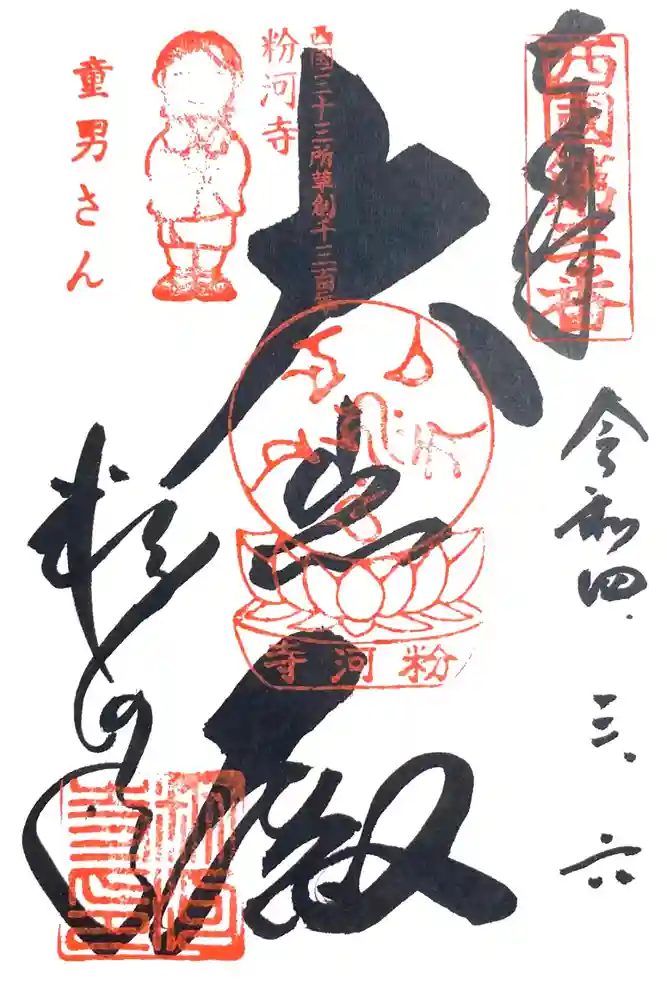 奉拝
西國第三番
令和四.三.六
西國三十三所草創千三百年
大悲殿
粉河寺
粉河寺
童男さん
粉河寺